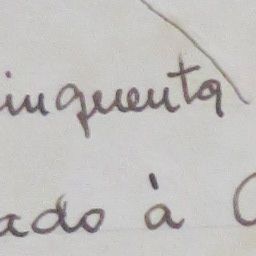 inquenta
ado à